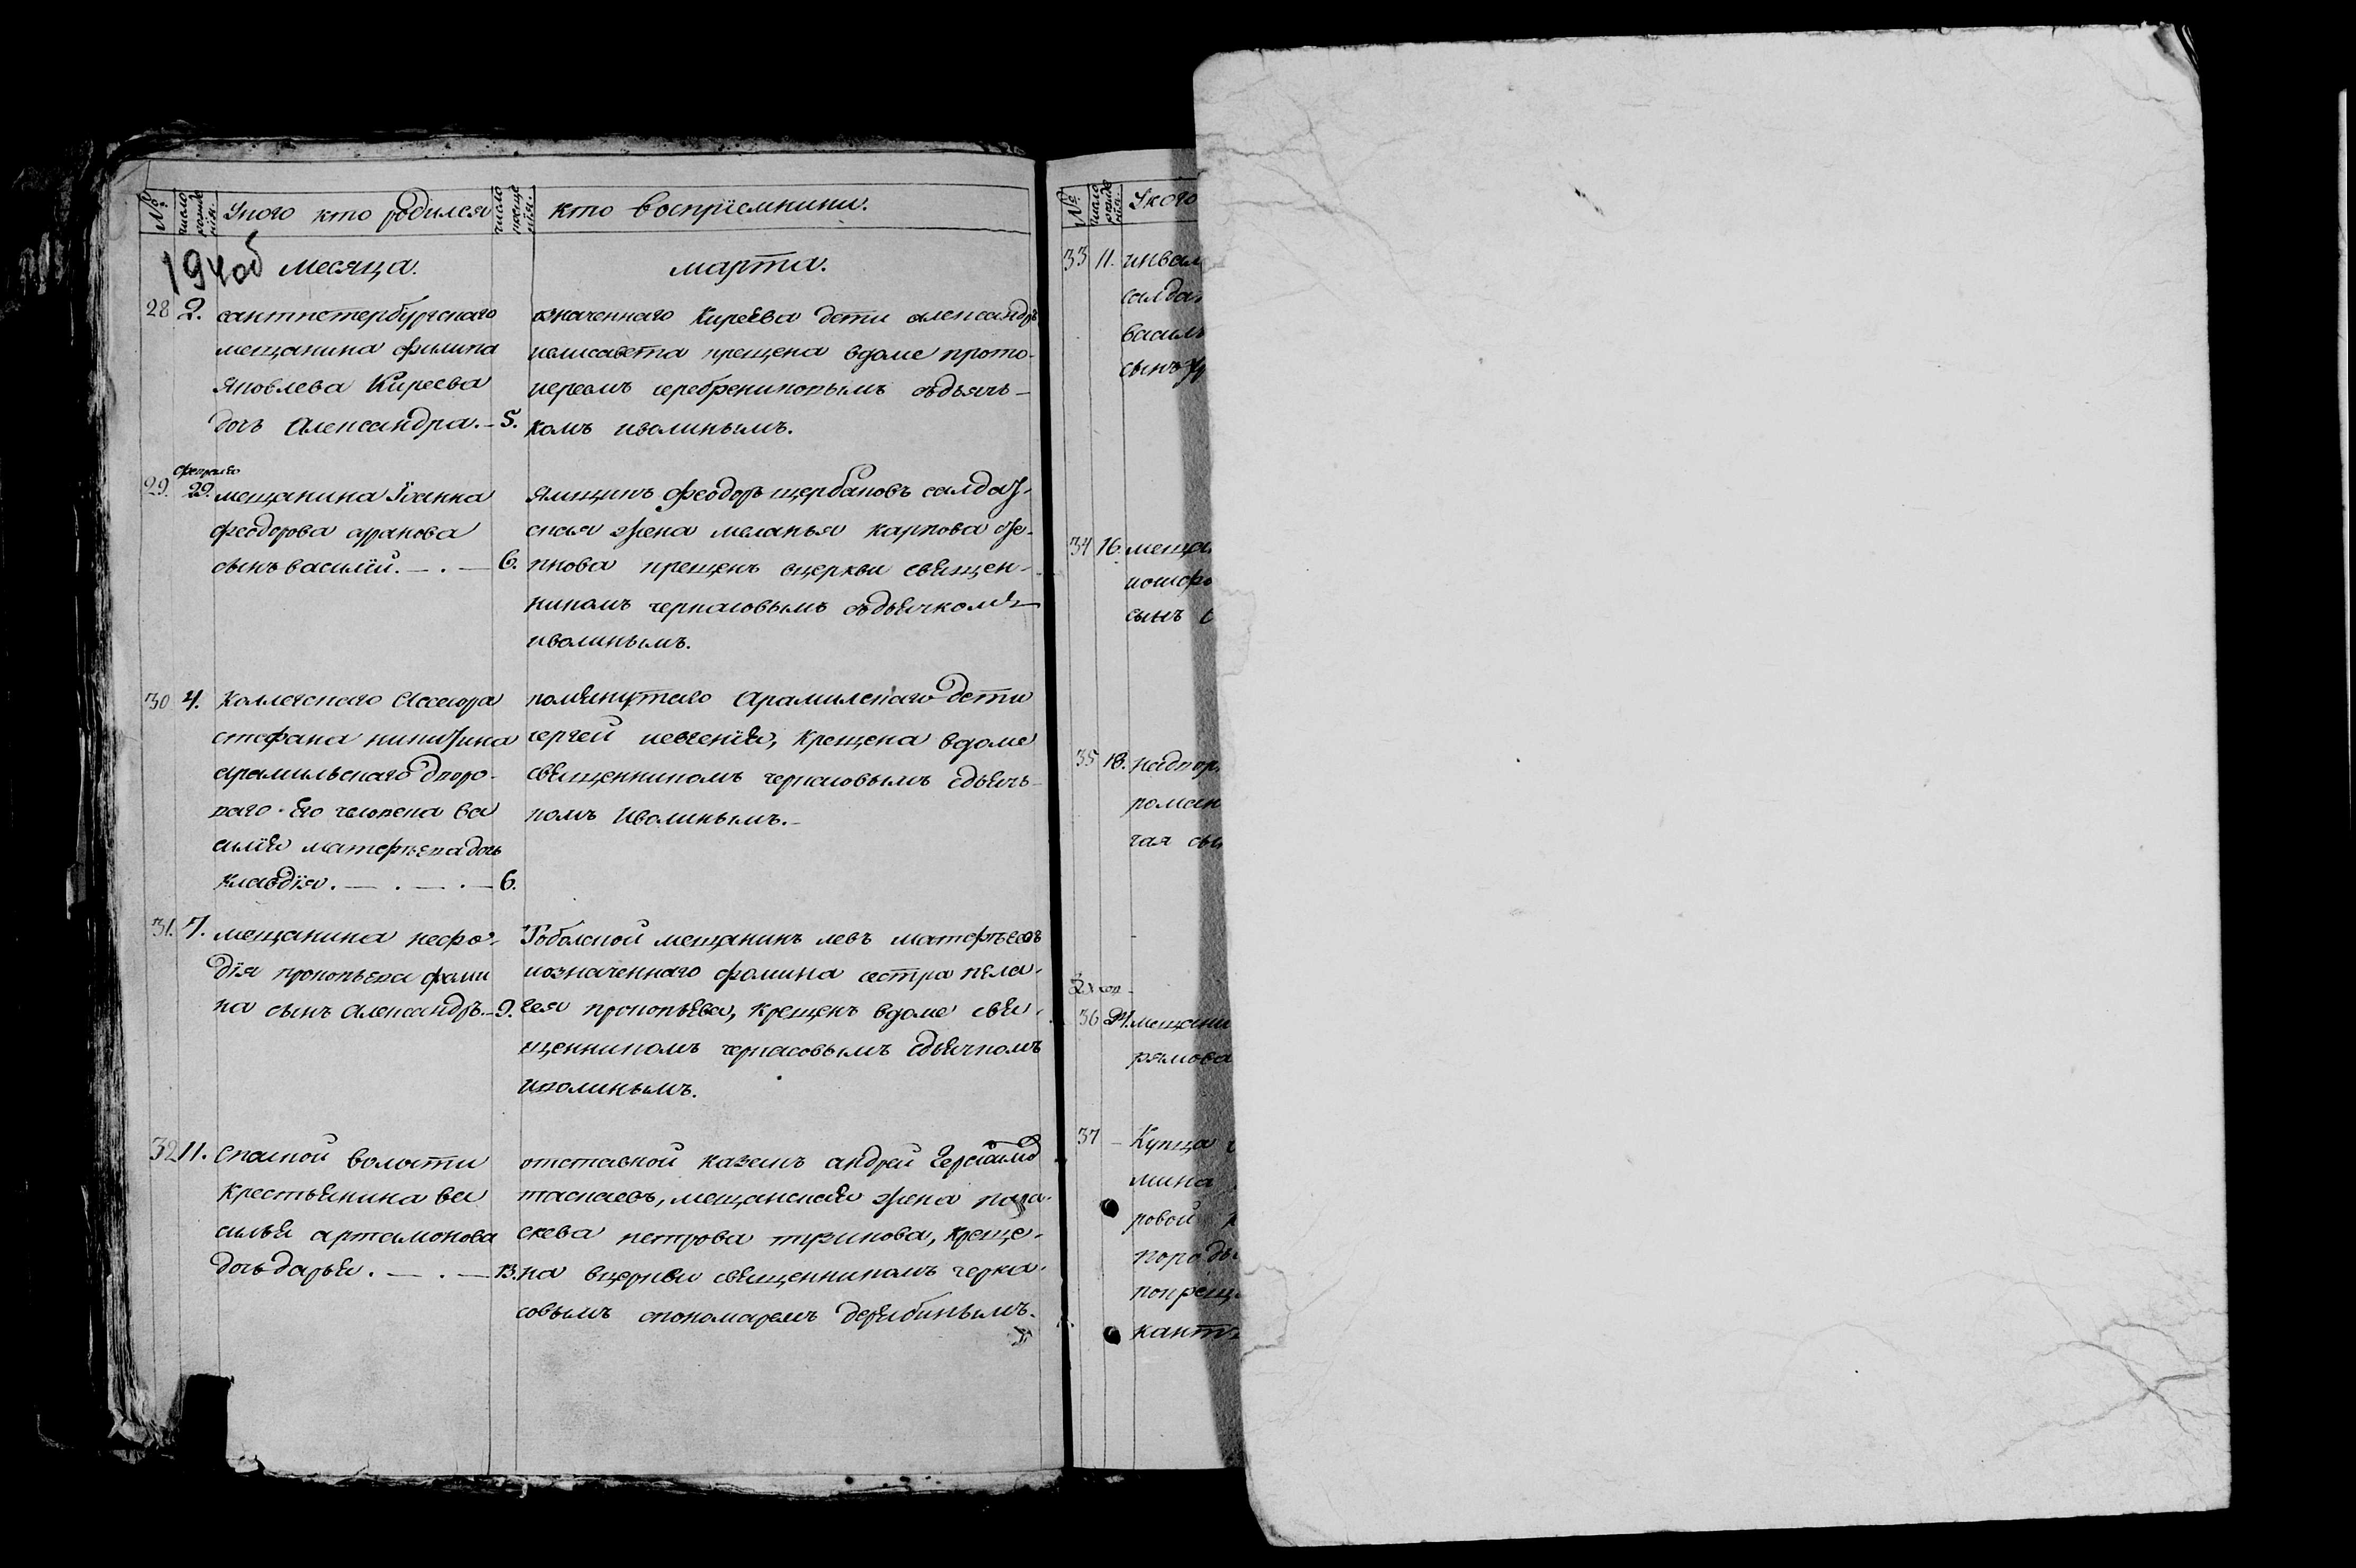 №. число рожде нія. Укого кто родился число крещенія. кто воспріемники.
194об месяца. марта.
28 2. санктпетербургскаго
мещанина филипа
яковлева Киреева
дочь Александра. – 5.
означеннаго Киреева дети александръ
иелисавета крещена вдоме прото-
иереомъ серебрениковымъ сдьячь-
комъ иволинымъ.
февраля
29. 29. мещанина Іоанна
феодорова
сынъ василій. – . – 6.
ямщикъ феодоръ щербаковъ салдат-
ская жена меланья карпова
крещенъ вцеркви священ-
никомъ черкасовымъ сдьячкомъ
иволинымъ.
30 4. Коллежскаго Ассесора
стефана никитина
арамильскаго дворо-
ваго его человека ва
силія матфѣева дочь
клавдія. – . – . – 6.
помянутаго Арамилскаго дети
сергей иевгенія, Крещена вдоме
священникомъ черкасовымъ сдьячь-
комъ Иволинымъ. –
31. 7. мещанина мефо-
дія прокопьева фоми
на сынъ Александръ. – 9.
Тоболской мещанинъ левъ матфѣевъ
иозначеннаго фомина сестра пела-
гея прокопьева, Крещенъ вдоме свя-
щенникомъ черкасовымъ сдьячкомъ
иволинымъ.
32 11. Спаской волости
Крестьянина ва
силья артамонова
дочь дарья. – . – 13.
отставной казакъ андрей
таскаевъ, мещанская жена пара-
скева петрова тузикова, Креще-
на вцеркви священникомъ черка-
совымъ спономаремъ дерябинымъ.
№. число рожде нія. Укого
33 11. инвал
салда
василь
сынъ
34 16. меща
иосифо
сынъ
35 18.
роман
чая сы
36 21. мещани
рямова
37 – Купца
мина
ровой
породы
покрещ
кант